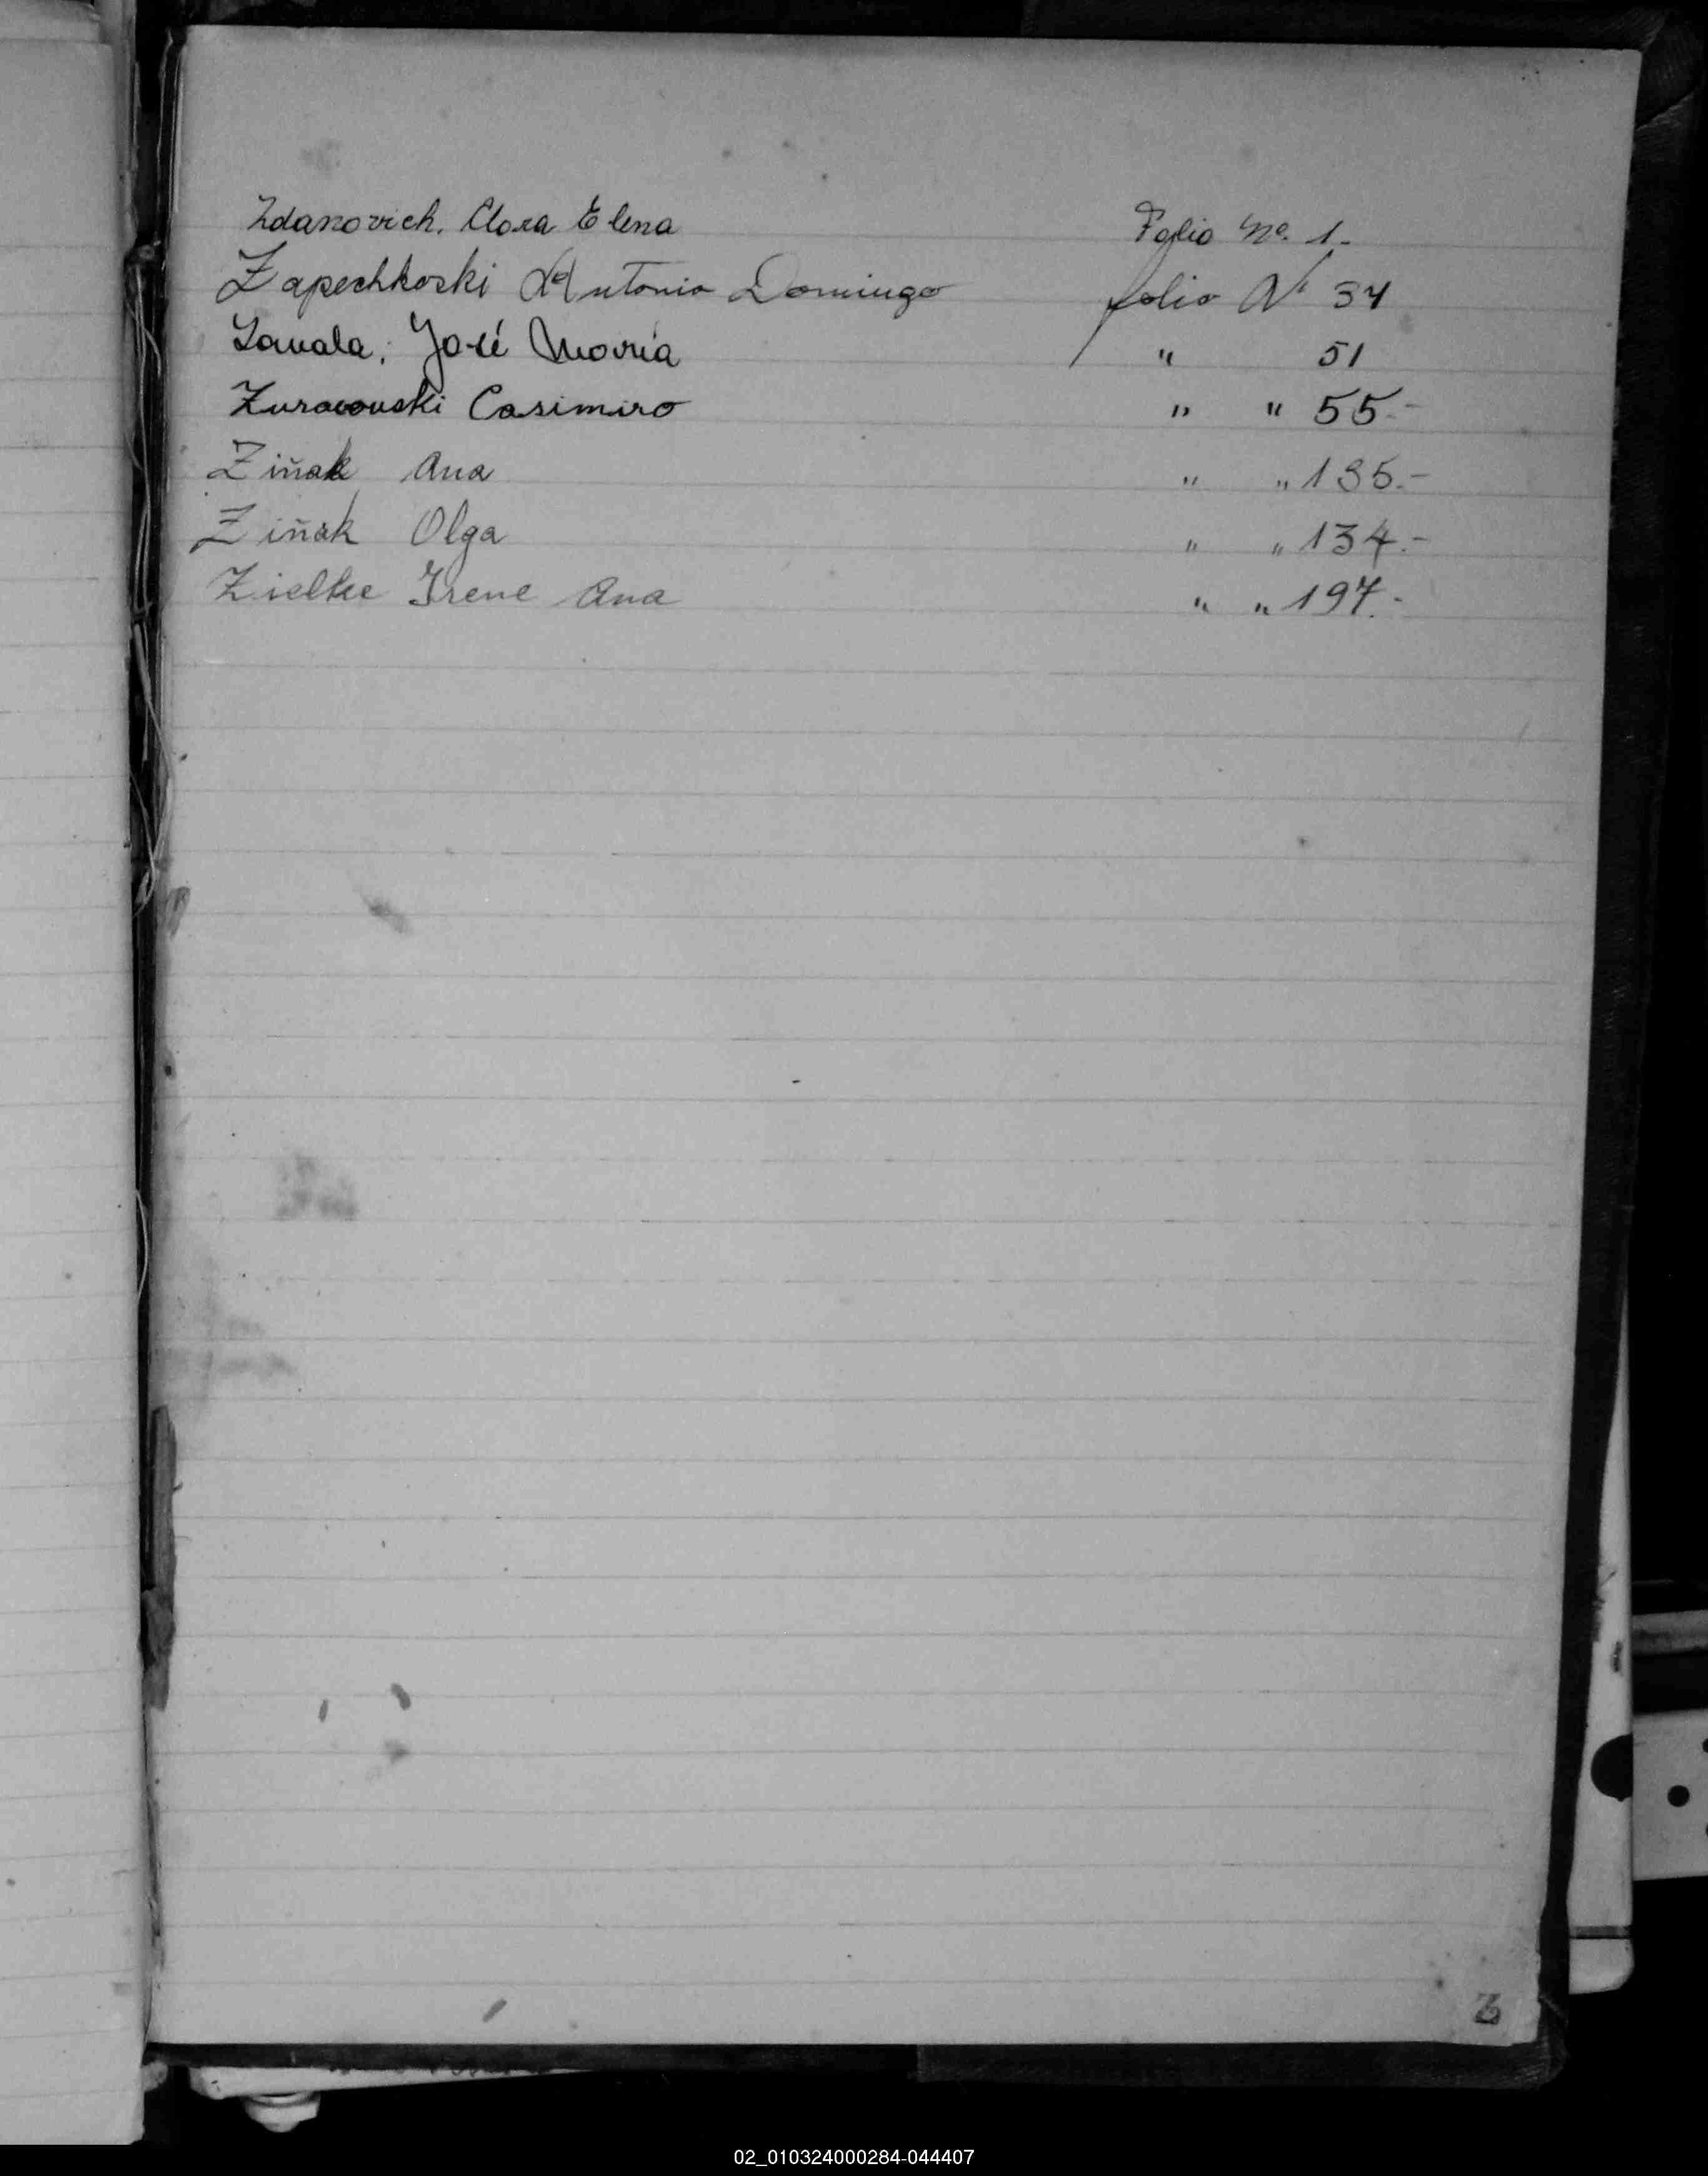 Zdanovich, Clara Elena Folio No. 1.
Zapechkoski Antonio Domingo folio Nº 34
Zavala, José María " 51
Zuracouski Casimiro " " 55.-
Ziñak Ana " " 135.-
Ziñak Olga " " 134.-
Zielke Irene Ana " " 197.-
Z
02_010324000284-044407